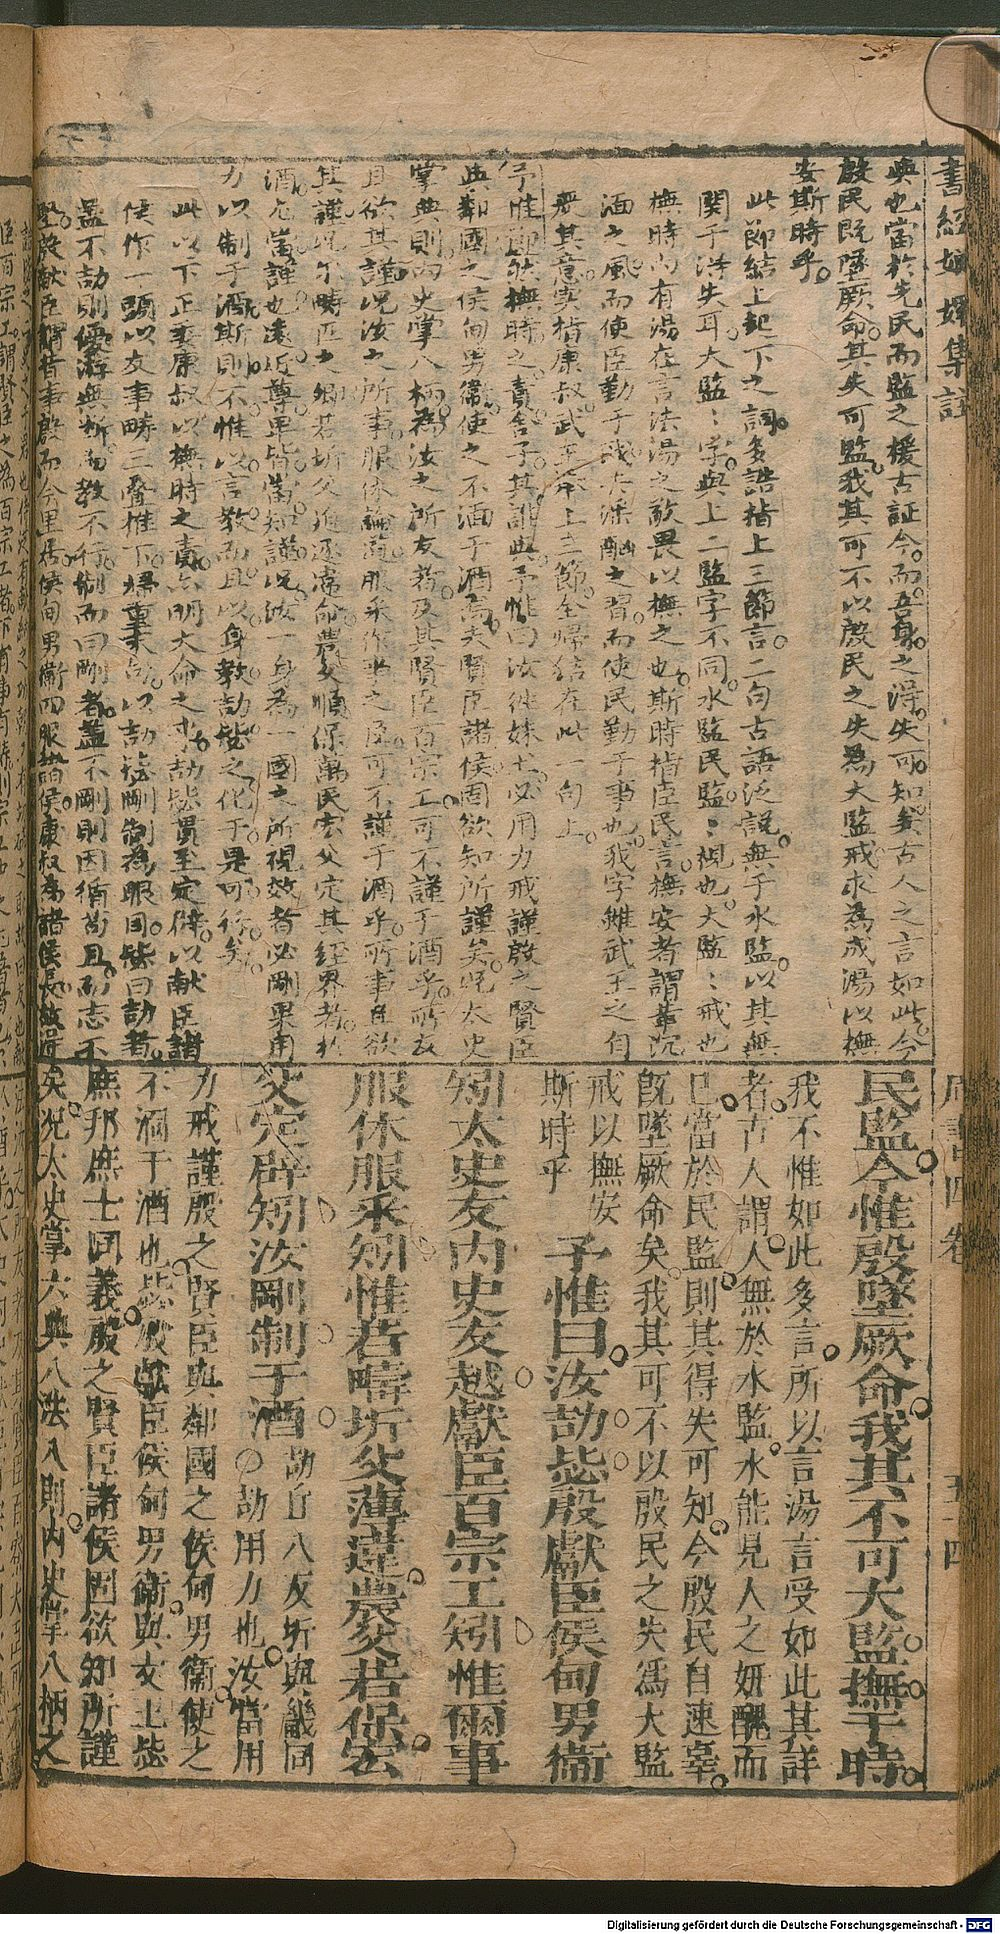 書經嫏嬛集註
與也當於先民而監之援古証今而吾身之淂失可知矣古人之言如此今
殷民既墜厥命其失可監我其可不以殷民之失為大監戒求為成湯以撫
安斯時乎
此節結上起下之詞多誥指上三節言二句古語泛說無于水監以其無
関于淂失耳大監〻字與上二監字不同水監民監〻視也大監〻戒也
撫時內有湯在言法湯之敬畏以撫之也斯時指臣民言撫安者謂革沉
湎之風而使臣勤于職去湎酗之習而使民勤于事也我字雖武王之自
我其意寔指康叔武王上三節全帰結在此一句上
予惟節欲撫時之責舍子其誰與予惟曰汝徃妹土必用力戒謹殷之賢臣
與鄰國之侯甸男衛使之不湎于酒焉夫賢臣諸侯固欲知所謹矣况太史
掌典則內史掌八柄為汝之所友者及其賢臣百宗工可不謹于酒乎所友
且欲其謹况汝之所事服休論道服采作事之臣可不謹于酒乎所事且欲
其謹况尔疇匹之鄉若圻父迫逐違命農父順保萬民宏父定其經界者於
酒尤當謹也遠近尊卑皆當知謹况汝一身為一國之所視效者必剛果用
力以制于酒斯則不惟以言教而且以身教劼毖之化于是可行矣
此以下正委康叔以撫時之責亦明大命之事劼毖貫至定辟以献臣諸
侯作一頭以友事疇三叠推下帰重末句以劼毖剛制為眼目毖曰劼者
盖不劼則優游無断而教不行制而曰剛者盖不剛則因循苟且而志不
堅殷献臣謂昔事殷而今里居侯甸男衛四服諸侯康叔為諸侯長故得
周書四卷 五十四
民監今惟殷墜厥命我其不可大監撫于時
我不惟如此多言所以言湯言受如此其詳
者古人謂人無於水監水能見人之妍醜而
已當於民監則其得失可知今殷民自速辜
既墜厥命矣我其可不以殷民之失爲大監
戒以撫安
斯時乎
予惟曰汝劼毖殷獻臣侯甸男衞
矧太史友内史友越獻臣百宗工矧惟爾事
服休服采矧惟若疇圻父薄違農父若保宏
父定辟矧汝剛制于酒
劼丘八反圻與畿同
○劼用力也汝當用
力戒謹殷之賢臣與鄰國之侯甸男衛使之
不湎于酒也毖殷獻臣侯甸男衛與文王毖
庶邦庶士同義殷之賢臣諸侯固欲知所謹
矣況太史掌六典八法八則内史掌八柄之
Digitalisierung gefördert durch die Deutsche Forschungsgemeinschaft - DFG